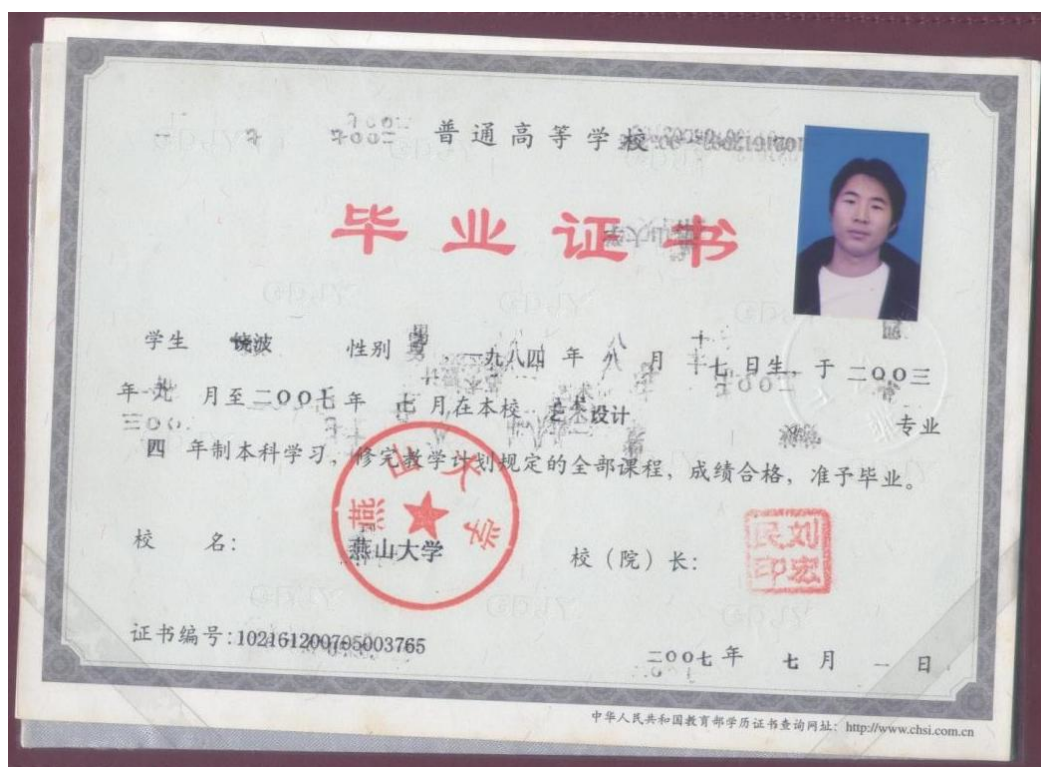 普通高等学校
毕业证书
学生 饶波 性别 男，一九八四年 八 月 十七日生，于二〇〇三
年 九 月至二〇〇七年 七 月在本校 艺术设计 专业
四 年制本科学习，修完教学计划规定的全部课程，成绩合格，准予毕业。
校 名： 燕山大学 校（院）长： 刘宏民印
燕山大学
证书编号：102161200705003765
二〇〇七年 七 月 一 日
中华人民共和国教育部学历证书查询网址：http://www.chsi.com.cn